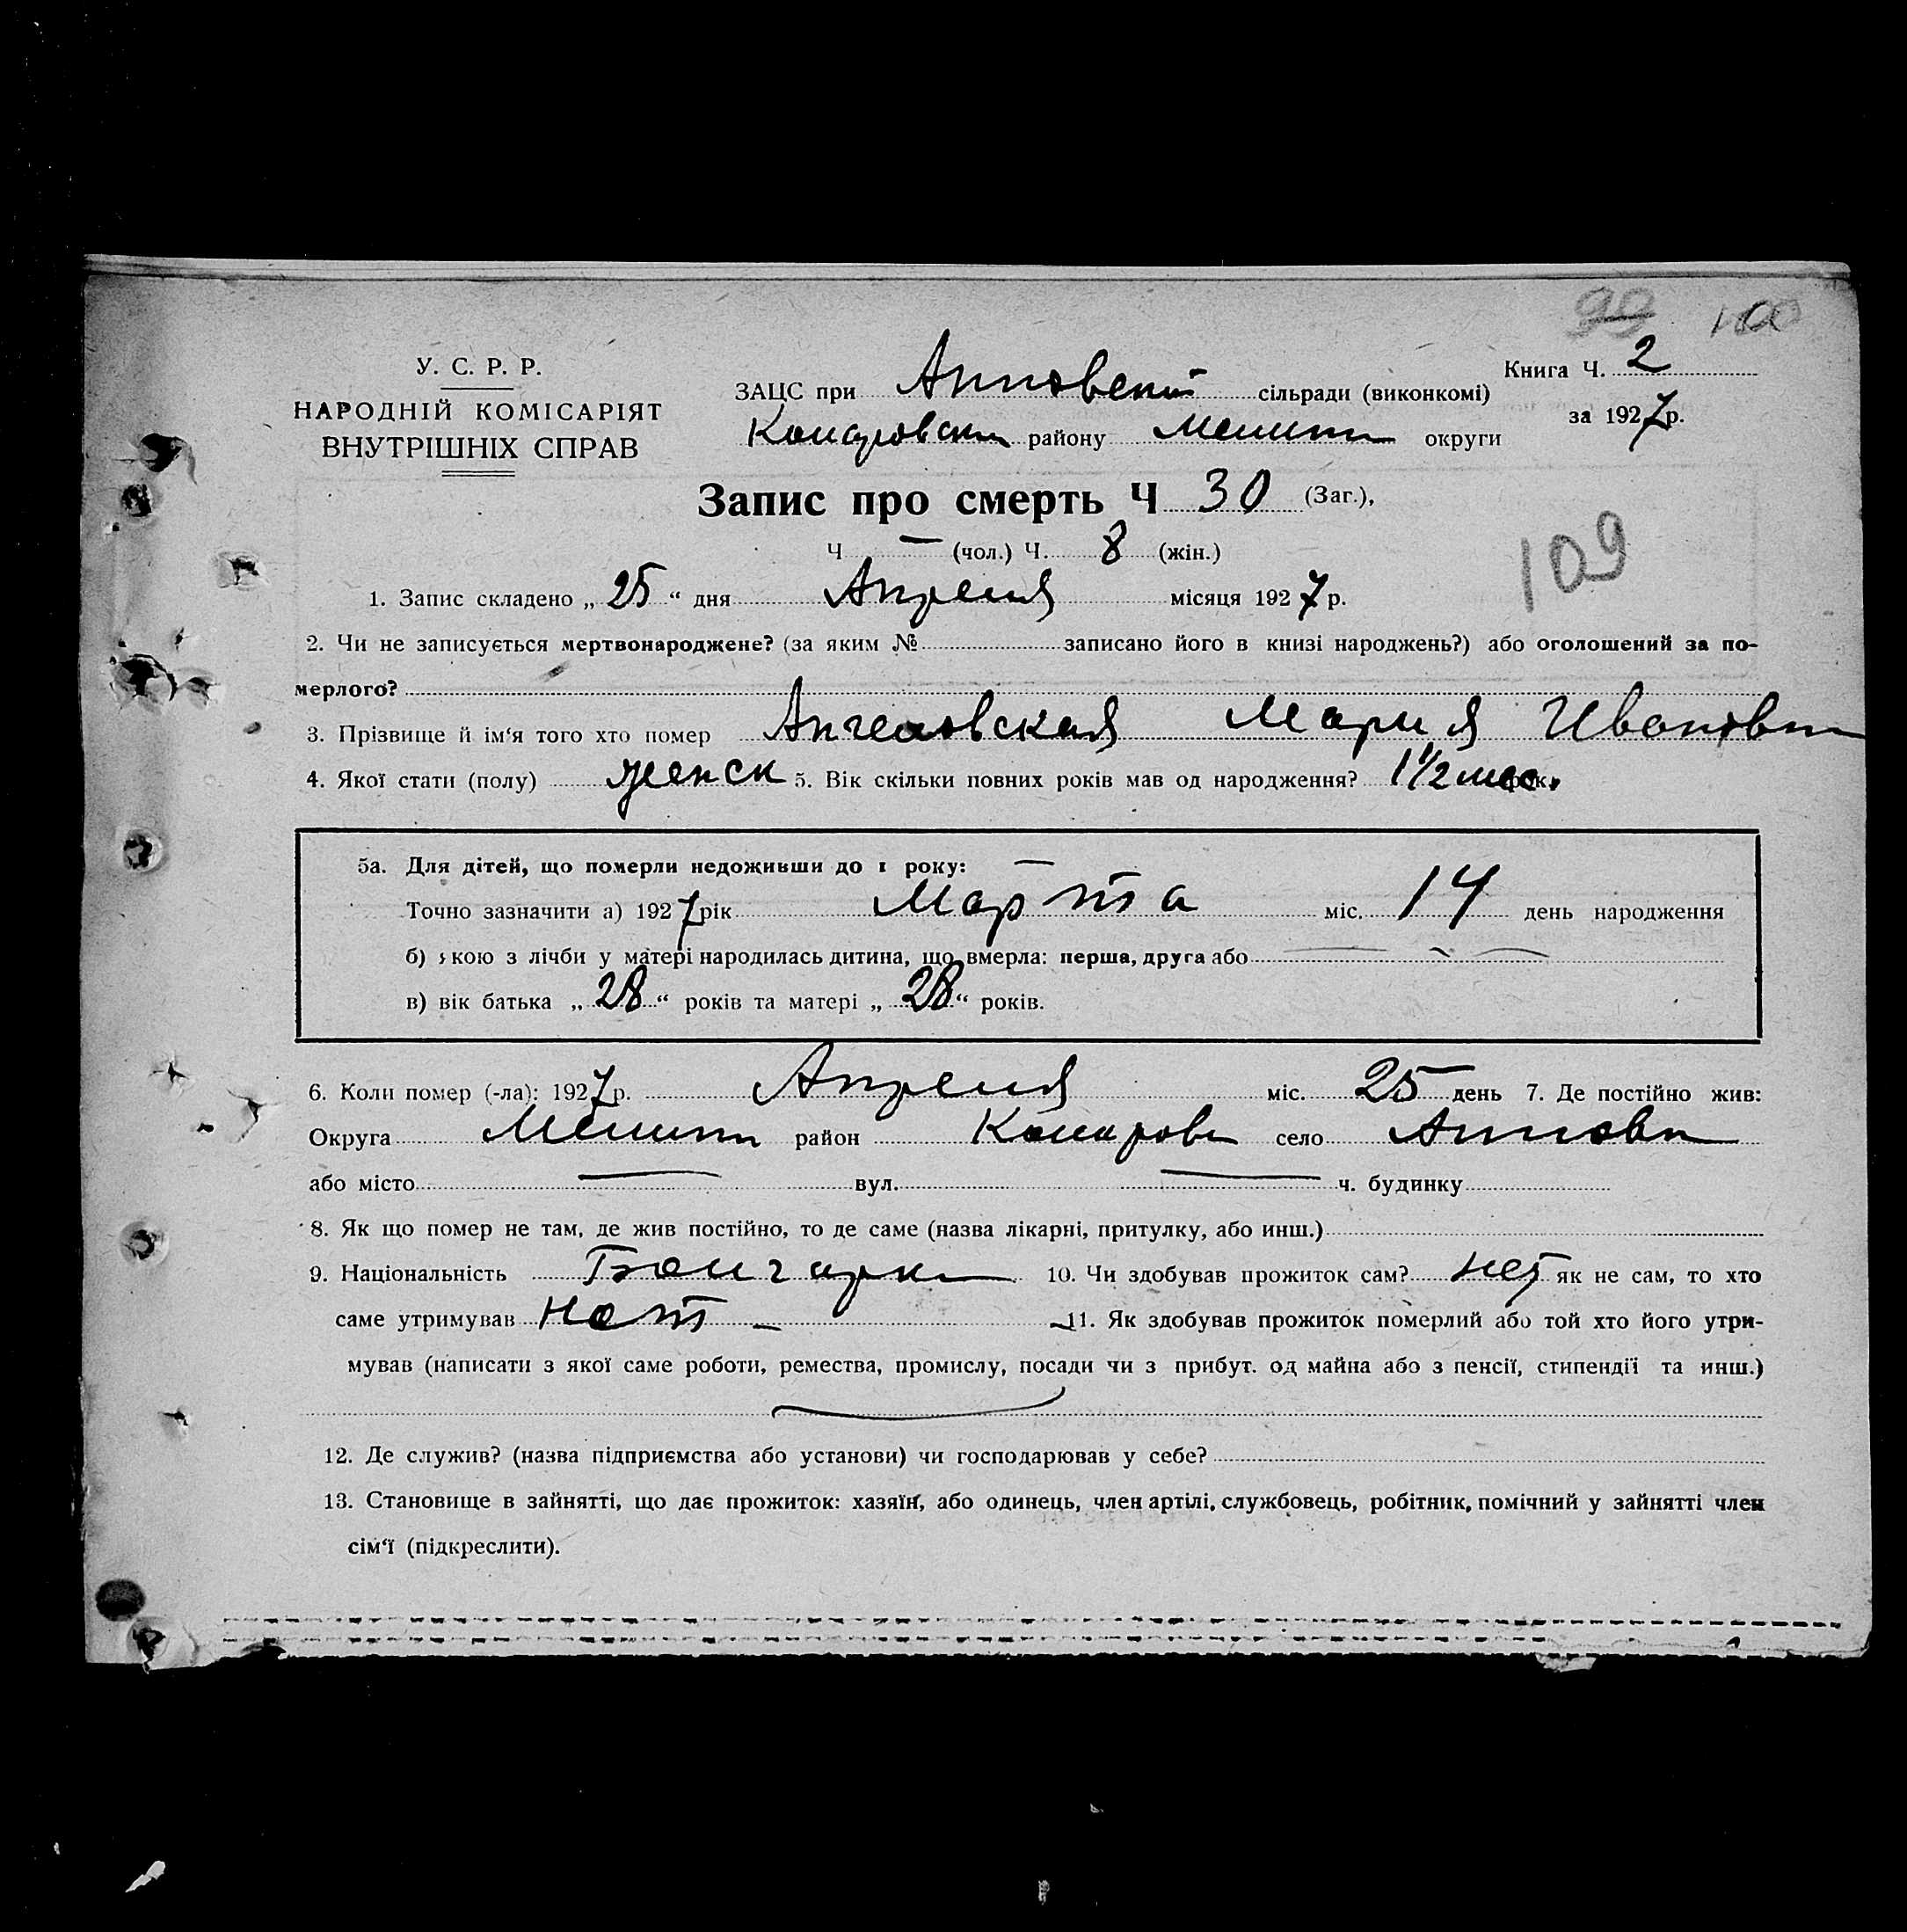 99 100
У. С. Р. Р.
НАРОДНІЙ КОМІСАРІЯТ
ВНУТРІШНІХ СПРАВ
Книга Ч. 2
за 1927 р.
ЗАЦС при сільради (виконкомі)
району Мелит округи
Запис про смерть Ч 30 (Заг.),
Ч — (чол.) Ч. 8 (жін.)
109
1. Запис складено „ 25 “ дня Апреля місяця 1927 р.
2. Чи не записується мертвонароджене? (за яким № записано його в книзі народжень?) або оголошений за по-
мерлого?
3. Прізвище й ім‘я того хто помер Ангеловская Мария Ивановн
4. Якої стати (полу) женск 5. Вік скільки повних років мав од народження? 1 1/2 мес. рок.
5а. Для дітей, що померли недоживши до 1 року: —
Точно зазначити а) 1927 рік Марта міс. 14 день народження
б) якою з лічби у матері народилась дитина, що вмерла: перша, друга або —
в) вік батька „ 28 “ років та матері „ 28 “ років.
6. Коли помер (-ла): 1927 р. Апреля міс. 25 день 7. Де постійно жив:
Округа Мелит район село
або місто — вул. — ч. будинку
8. Як що помер не там, де жив постійно, то де саме (назва лікарні, притулку, або инш.)
9. Національність Болгарка 10. Чи здобував прожиток сам? нет як не сам, то хто
саме утримував — 11. Як здобував прожиток померлий або той хто його утри-
мував (написати з якої саме роботи, ремества, промислу, посади чи з прибут. од майна або з пенсії, стипендії та инш.)
12. Де служив? (назва підприємства або установи) чи господарював у себе?
13. Становище в зайнятті, що дає прожиток: хазяїн, або одинець, член артілі, службовець, робітник, помічний у зайнятті член
сім‘ї (підкреслити).